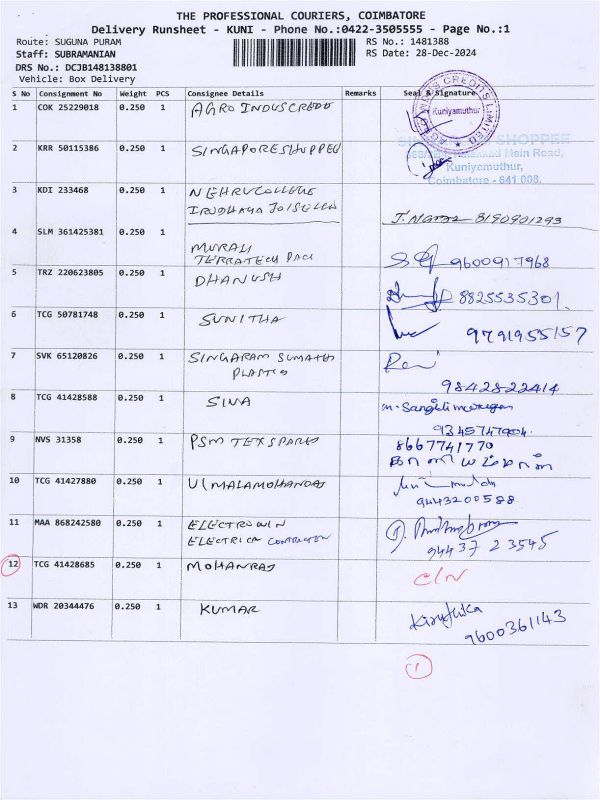 THE PROFESSIONAL COURIERS, COIMBATORE
Delivery Runsheet - KUNI - Phone No.:0422-3505555 - Page No.:1
Route: SUGUNA PURAM RS No.: 1481388
Staff: SUBRAMANIAN RS Date: 28-Dec-2024
DRS No.: DCJB148138801
Vehicle: Box Delivery
S No Consignment No Weight PCS Consignee Details Remarks Seal & Signature
1 COK 25229018 0.250 1 AGRO INDUSCREDO
CREDITS LIMITED
Kuniyamuthur
2 KRR 50115386 0.250 1 SINGAPORESHOPPEE
SHOPPEE
Main Road,
Kuniyamuthur,
Coimbatore - 641 008.
3 KDI 233468 0.250 1 NEHRUCOLLEGE
8190901293
4 SLM 361425381 0.250 1 MURALI
TERRATECH PACI
9600917968
5 TRZ 220623805 0.250 1 DHANUSH
8825535301.
6 TCG 50781748 0.250 1 SUNITHA
9791955157
7 SVK 65120826 0.250 1 SINGARAM SUMATHI
PLASTICS
Ravi
9842822414
8 TCG 41428588 0.250 1 SIVA
9345747904.
9 NVS 31358 0.250 1 PSM TEXSPARES
8667741770
10 TCG 41427880 0.250 1 VIMALAMOHANDAS
9443200588
11 MAA 868242580 0.250 1 ELECTROWIN
ELECTRICA CONTRACTOR
94437 23545
12 TCG 41428685 0.250 1 MOHANRAJ
C/N
13 WDR 20344476 0.250 1 KUMAR
Kiruthika
9600361143
1